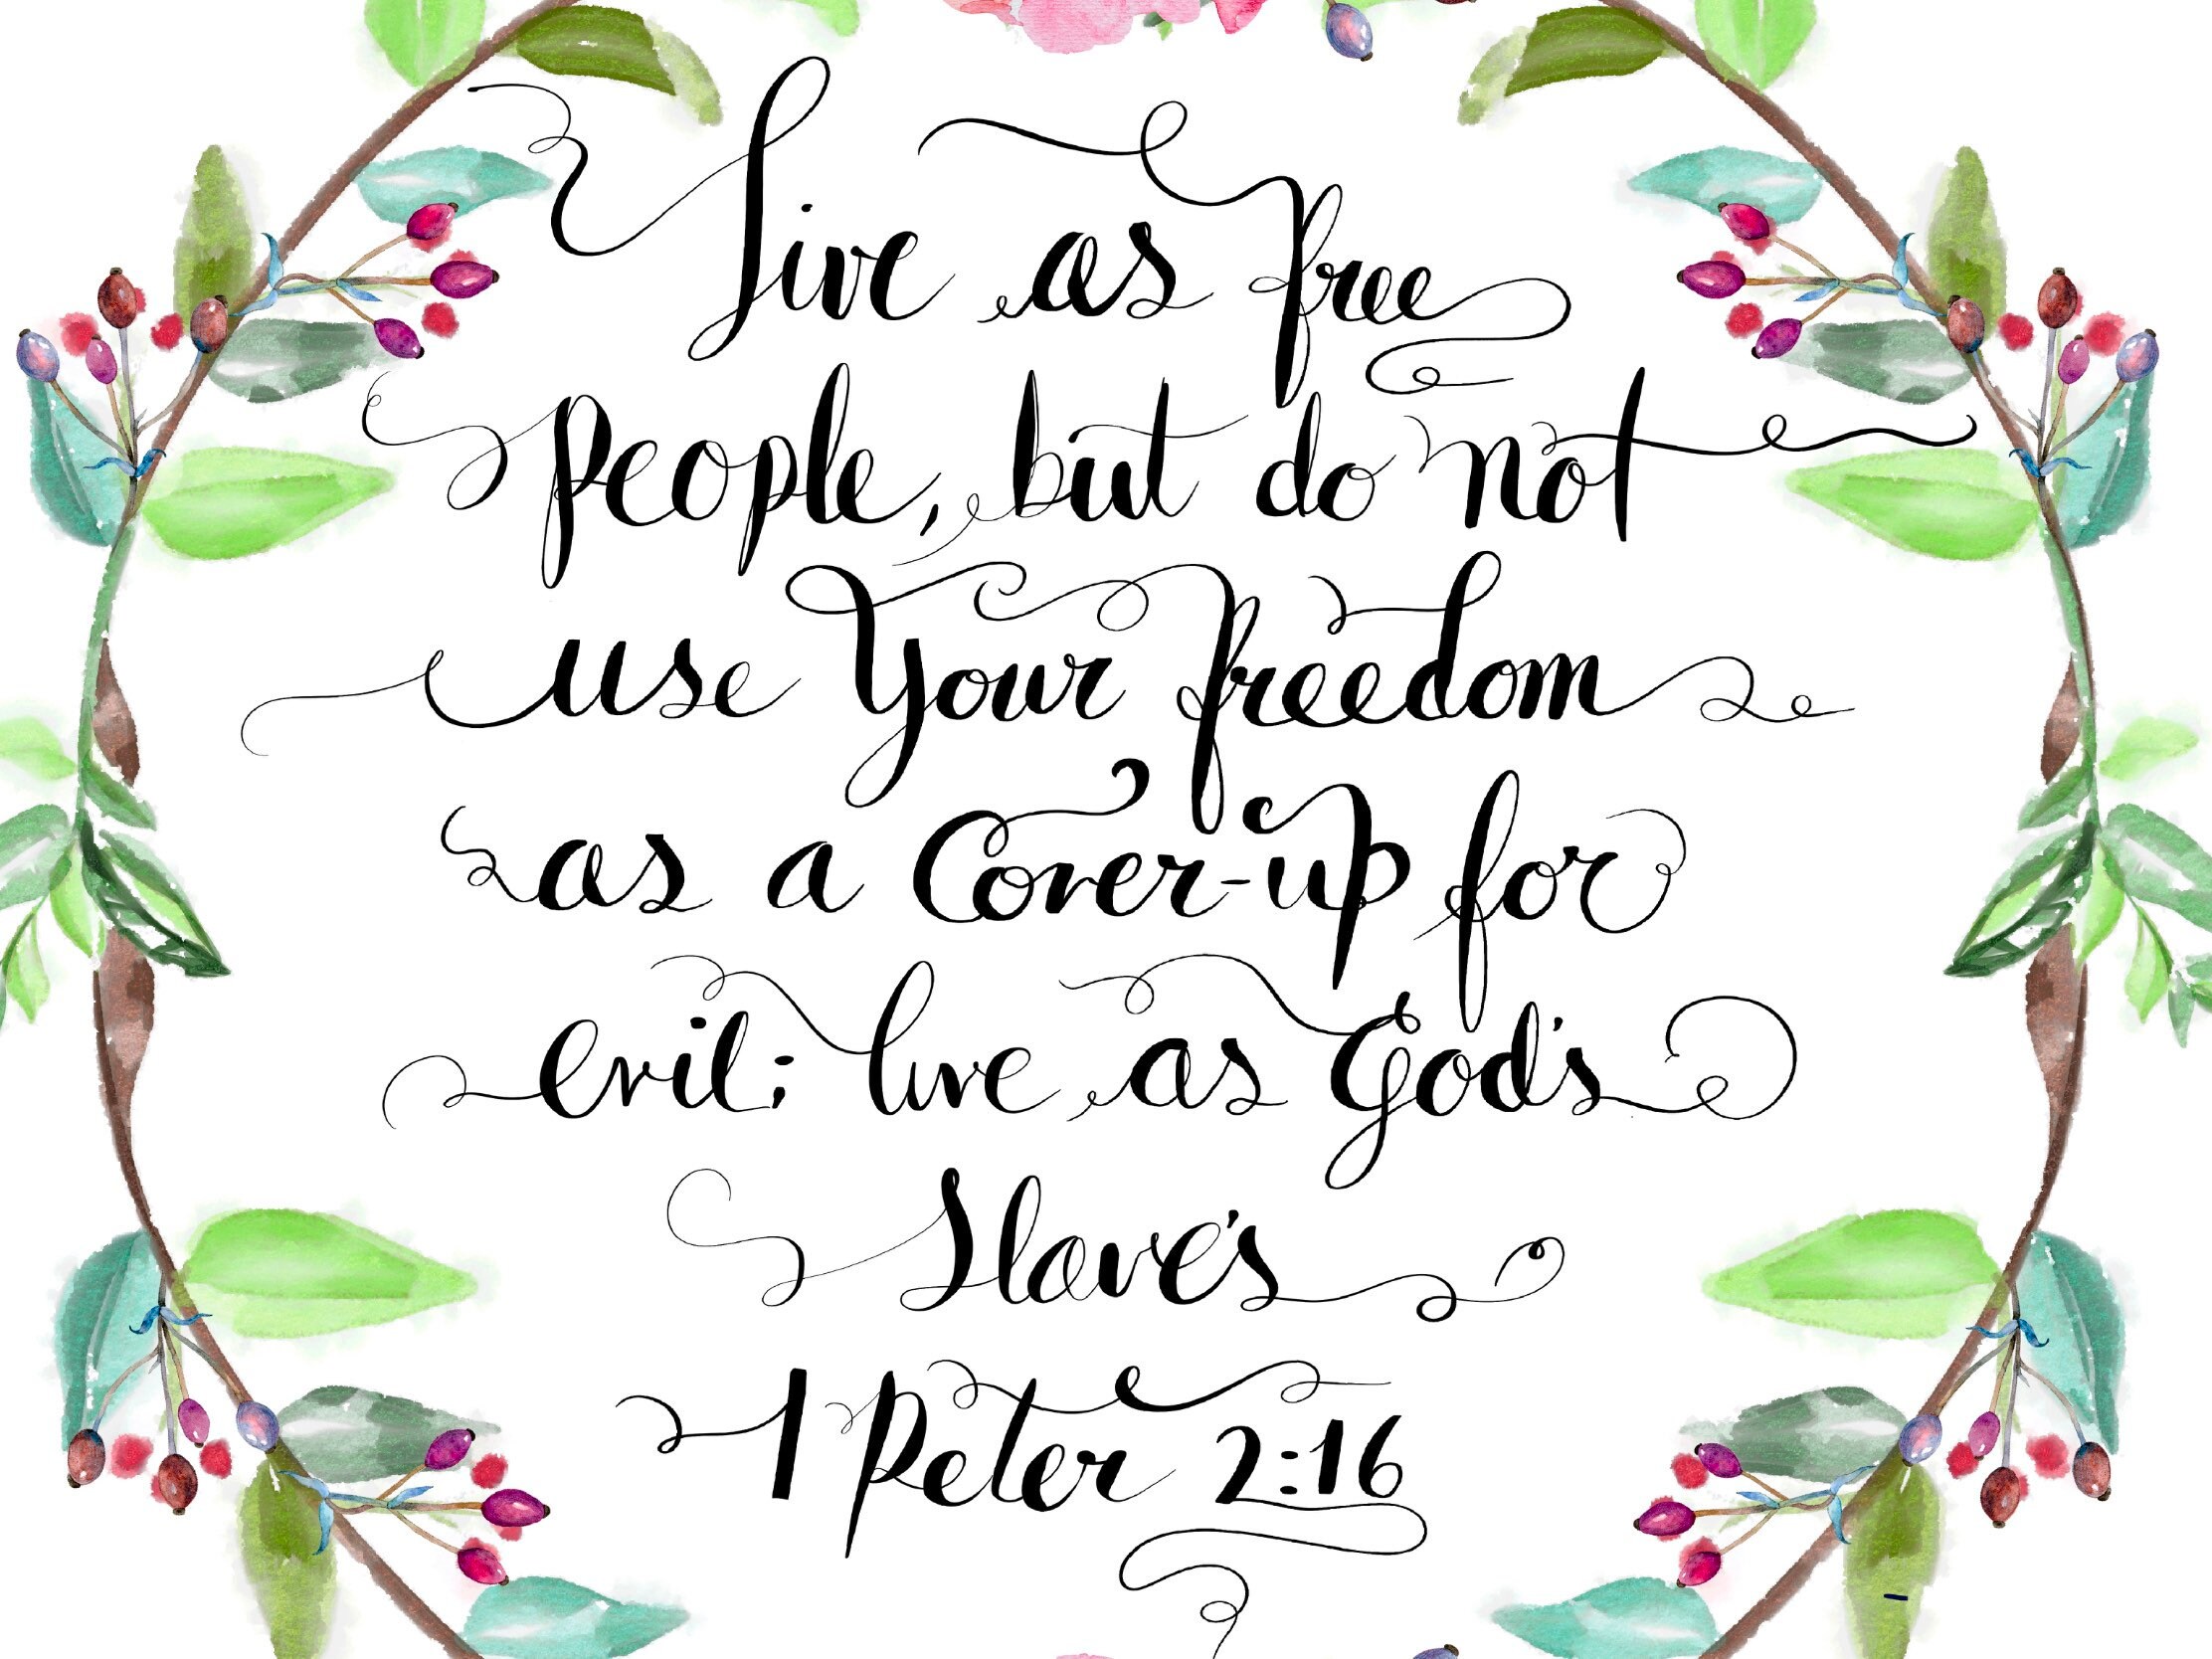 Live as free
people, but do not
use your freedom
as a Cover-up for
evil; live as God's
Slave's
1 Peter 2:16